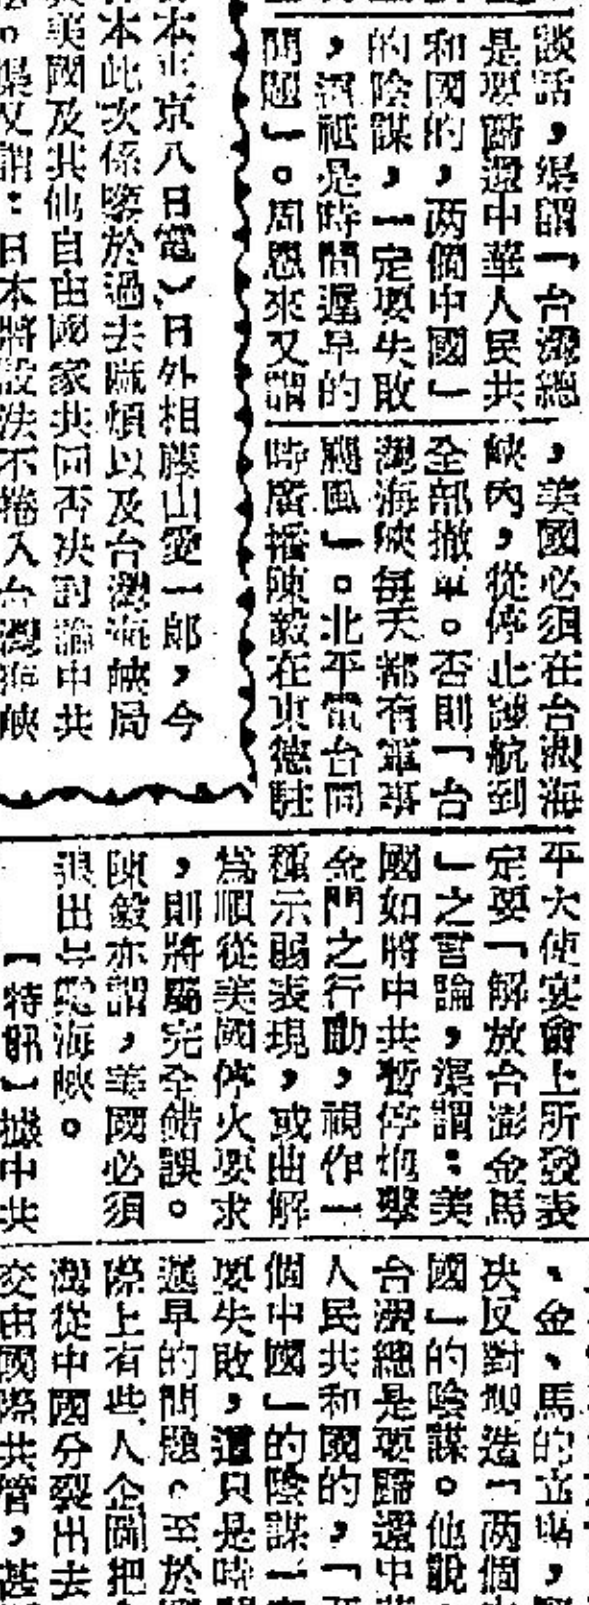 談話，渠謂「台灣總
是要歸還中華人民共
和國的，两個中國」
的陰謀，一定要失敗
，這祇是時間遲早的
問題」。周恩來又謂
，美國必須在台灣海
峽內，從停止護航到
全部撤軍。否則「台
灣海峽每天都有軍事
颶風」。北平電台同
時廣播陳毅在東德駐
本東京八日電）日外相藤山愛一郎，今
本此次係鑒於過去麻煩以及台灣海峽局
美國及其他自由國家共同否决討論中共
渠又謂：日本將設法不捲入台灣海峽
平大使宴會上所發表
定要「解放台澎金馬
」之言論，渠謂：美
國如將中共暫停炮擊
金門之行動，視作一
種示弱表現，或曲解
爲順從美國停火要求
，則將屬完全錯誤。
陳毅亦謂，美國必須
退出台灣海峽。
【特訊】據中共
、金、馬的立場，
决反對制造「两個
國」的陰謀。他說
台灣總是要歸還中
人民共和國的，「
個中國」的陰謀一
要失敗，這只是時
遲早的問題。至於
際上有些人企圖把
灣從中國分裂出去
交由國際共管，甚